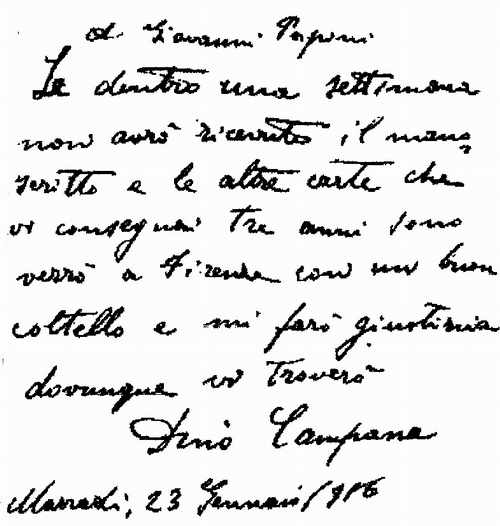 A Giovanni Papini
Se dentro una settimana
non avrò ricevuto il mano
scritto e le altre carte che
vi consegnai tre anni sono
verrò a Firenze con un buon
coltello e mi farò giustizia
dovunque vi troverò
Dino Campana
Marradi, 23 Gennaio 1916